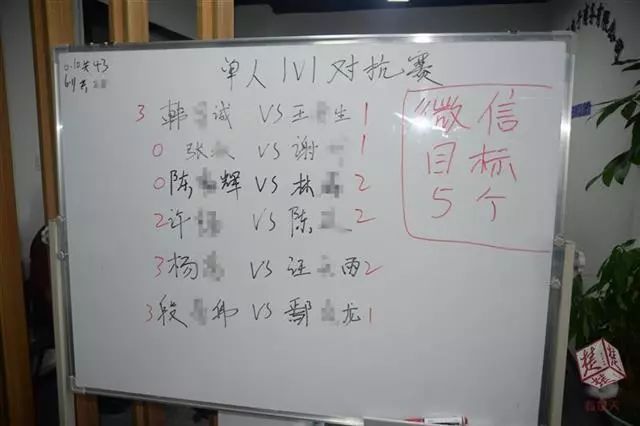 单人1V1对抗赛
3 韩 诚 VS 王 生 1
0 张 VS 谢 1
0 陈 辉 VS 林 2
2 许 VS 陈 2
3 杨 VS 汪 雨 2
3 段 VS 鄢 龙 1
微信
目标
5个